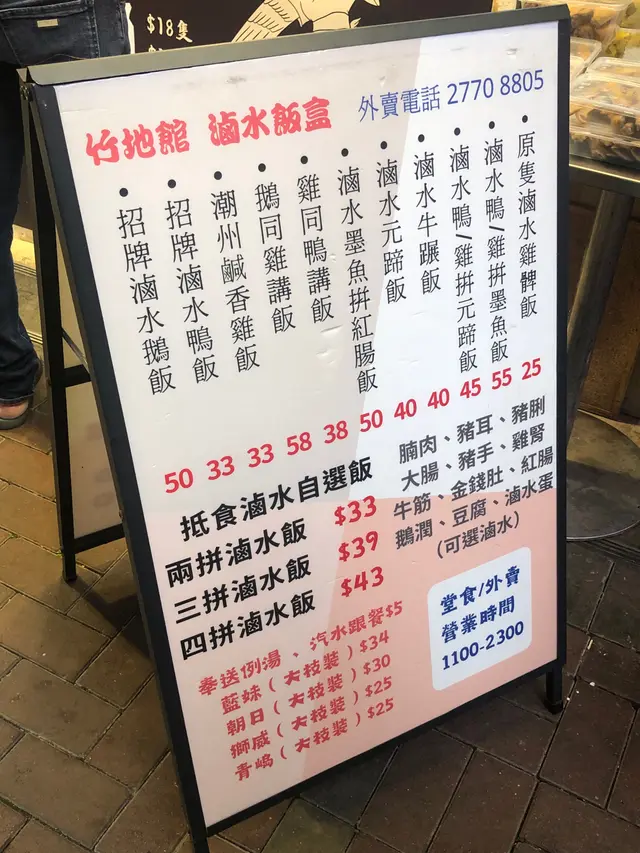 $18隻
竹地館 滷水飯盒
外賣電話 2770 8805
• 原隻滷水雞髀飯 25
• 滷水鴨/雞拼墨魚飯 55
• 滷水鴨/雞拼元蹄飯 45
• 滷水牛𦟌飯 40
• 滷水元蹄飯 40
• 滷水墨魚拼紅腸飯 50
• 雞同鴨講飯 38
• 鵝同雞講飯 58
• 潮州鹹香雞飯 33
• 招牌滷水鴨飯 33
• 招牌滷水鵝飯 50
抵食滷水自選飯
兩拼滷水飯 $33
三拼滷水飯 $39
四拼滷水飯 $43
腩肉、豬耳、豬脷
大腸、豬手、雞腎
牛筋、金錢肚、紅腸
鵝潤、豆腐、滷水蛋
(可選滷水)
奉送例湯、汽水跟餐$5
藍妹(大枝裝)$34
朝日(大枝裝)$30
獅威(大枝裝)$25
青島(大枝裝)$25
堂食/外賣
營業時間
1100-2300